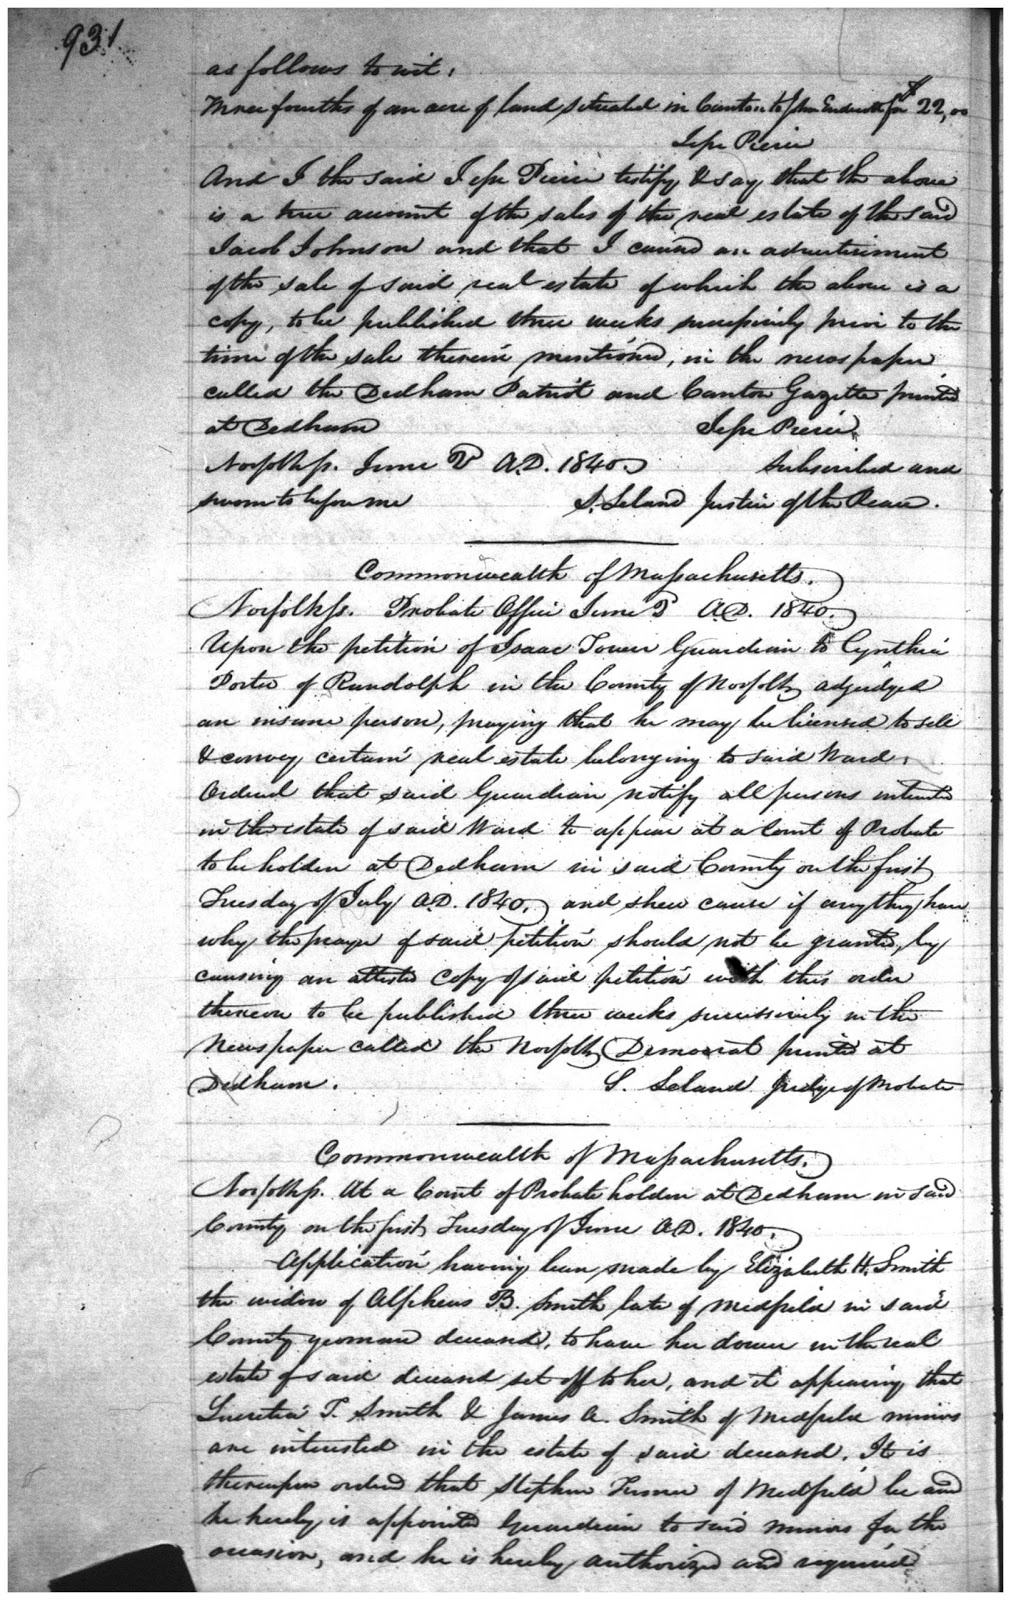 931
as follows to wit,
Three fourths of an acre of land situated in Canton to Jno Endicott for $22,00
Jesse Pierce
And I the said Jesse Pierce testify & say that the above
is a true account of the sales of the real estate of the said
Jacob Johnson and that I caused an advertisement
of the sale of said real estate of which the above is a
copy, to be published three weeks successively prior to the
time of the sale therein mentioned, in the newspaper
called the Dedham Patriot and Canton Gazette printed
at Dedham Jesse Pierce.
Norfolk ss. June A.D. 1840. Subscribed and
sworn to before me S. Leland Justice of the Peace.
Commonwealth of Massachusetts.
Norfolk ss. Probate Office June A.D. 1840.
Upon the petition of Isaac Tower Guardian to Cynthia
Porter of Randolph in the County of Norfolk adjudged
an insane person, praying that he may be licensed to sell
& convey certain real estate belonging to said Ward.
Ordered that said Guardian notify all persons interested
in the estate of said Ward to appear at a Court of Probate
to be holden at Dedham in said County on the first
Tuesday of July A.D. 1840. and shew cause if any they have
why the prayer of said petition should not be granted, by
causing an attested copy of said petition with this order
thereon to be published three weeks successively in the
Newspaper called the Norfolk Democrat printed at
Dedham. S. Leland Judge of Probate
Commonwealth of Massachusetts.
Norfolk ss. At a Court of Probate holden at Dedham in said
County on the first Tuesday of June A.D. 1840.
Application having been made by Elizabeth H. Smith
the widow of Alpheus B. Smith late of Medfield in said
County yeoman deceased, to have her dower in the real
estate of said deceased set off to her, and it appearing that
Lucretia T. Smith & James A. Smith of Medfield minors
are interested in the estate of said deceased. It is
thereupon ordered that Stephen Turner of Medfield be and
he hereby is appointed Guardian to said minors for the
occasion, and he is hereby authorized and required